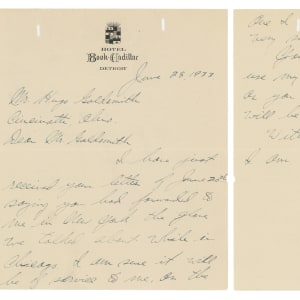 HOTEL
Book-Cadillac
DETROIT
June 28, 1933
Mr. Hugo Goldsmith
Cincinnatti Ohio.
Dear Mr. Goldsmith
I have just
received your letter of June 20th
saying you had forwarded to
me in New York the glove
we talked about while in
Chicago. I am sure it will
be of service to me, on the
one I
very
use my
on you
will be
Wit
I am